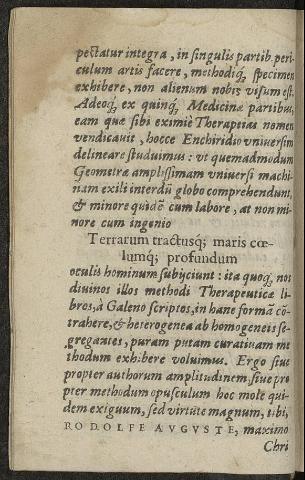 pectatur integra, in singulis partib. peri-
culum artis facere, methodiq́; specimen
exhibere, non alienum nobis visum est.
Adeoq́; ex quinq́; Medicinæ partibus,
eam quæ sibi eximiè Therapeias nomen
vendicauit, hocce Enchiridio vniuersim
delineare studuimus: vt quemadmodum
Geometræ amplissimam vniuersi machi-
nam exili interdũ globo comprehendunt,
& minore quidẽ cum labore, at non mi-
nore cum ingenio
Terrarum tractusq́; maris cœ-
lumq́; profundum
oculis hominum subijciunt: ita quoq́; nos
diuinos illos methodi Therapeuticæ li-
bros, à Galeno scriptos, in hanc formã cõ-
trahere, & heterogenea ab homogeneis se-
gregantes, puram putam curatiuam me
thodum exhibere voluimus. Ergo siue
propter authorum amplitudinem, siue pro
pter methodum opusculum hoc mole qui-
dem exiguum, sed virtute magnum, tibi,
RODOLFE AVGVSTE, maximo
Chri